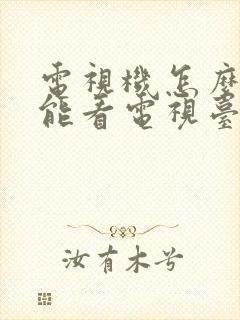 電視機怎麼
能看電視臺
汝有木兮